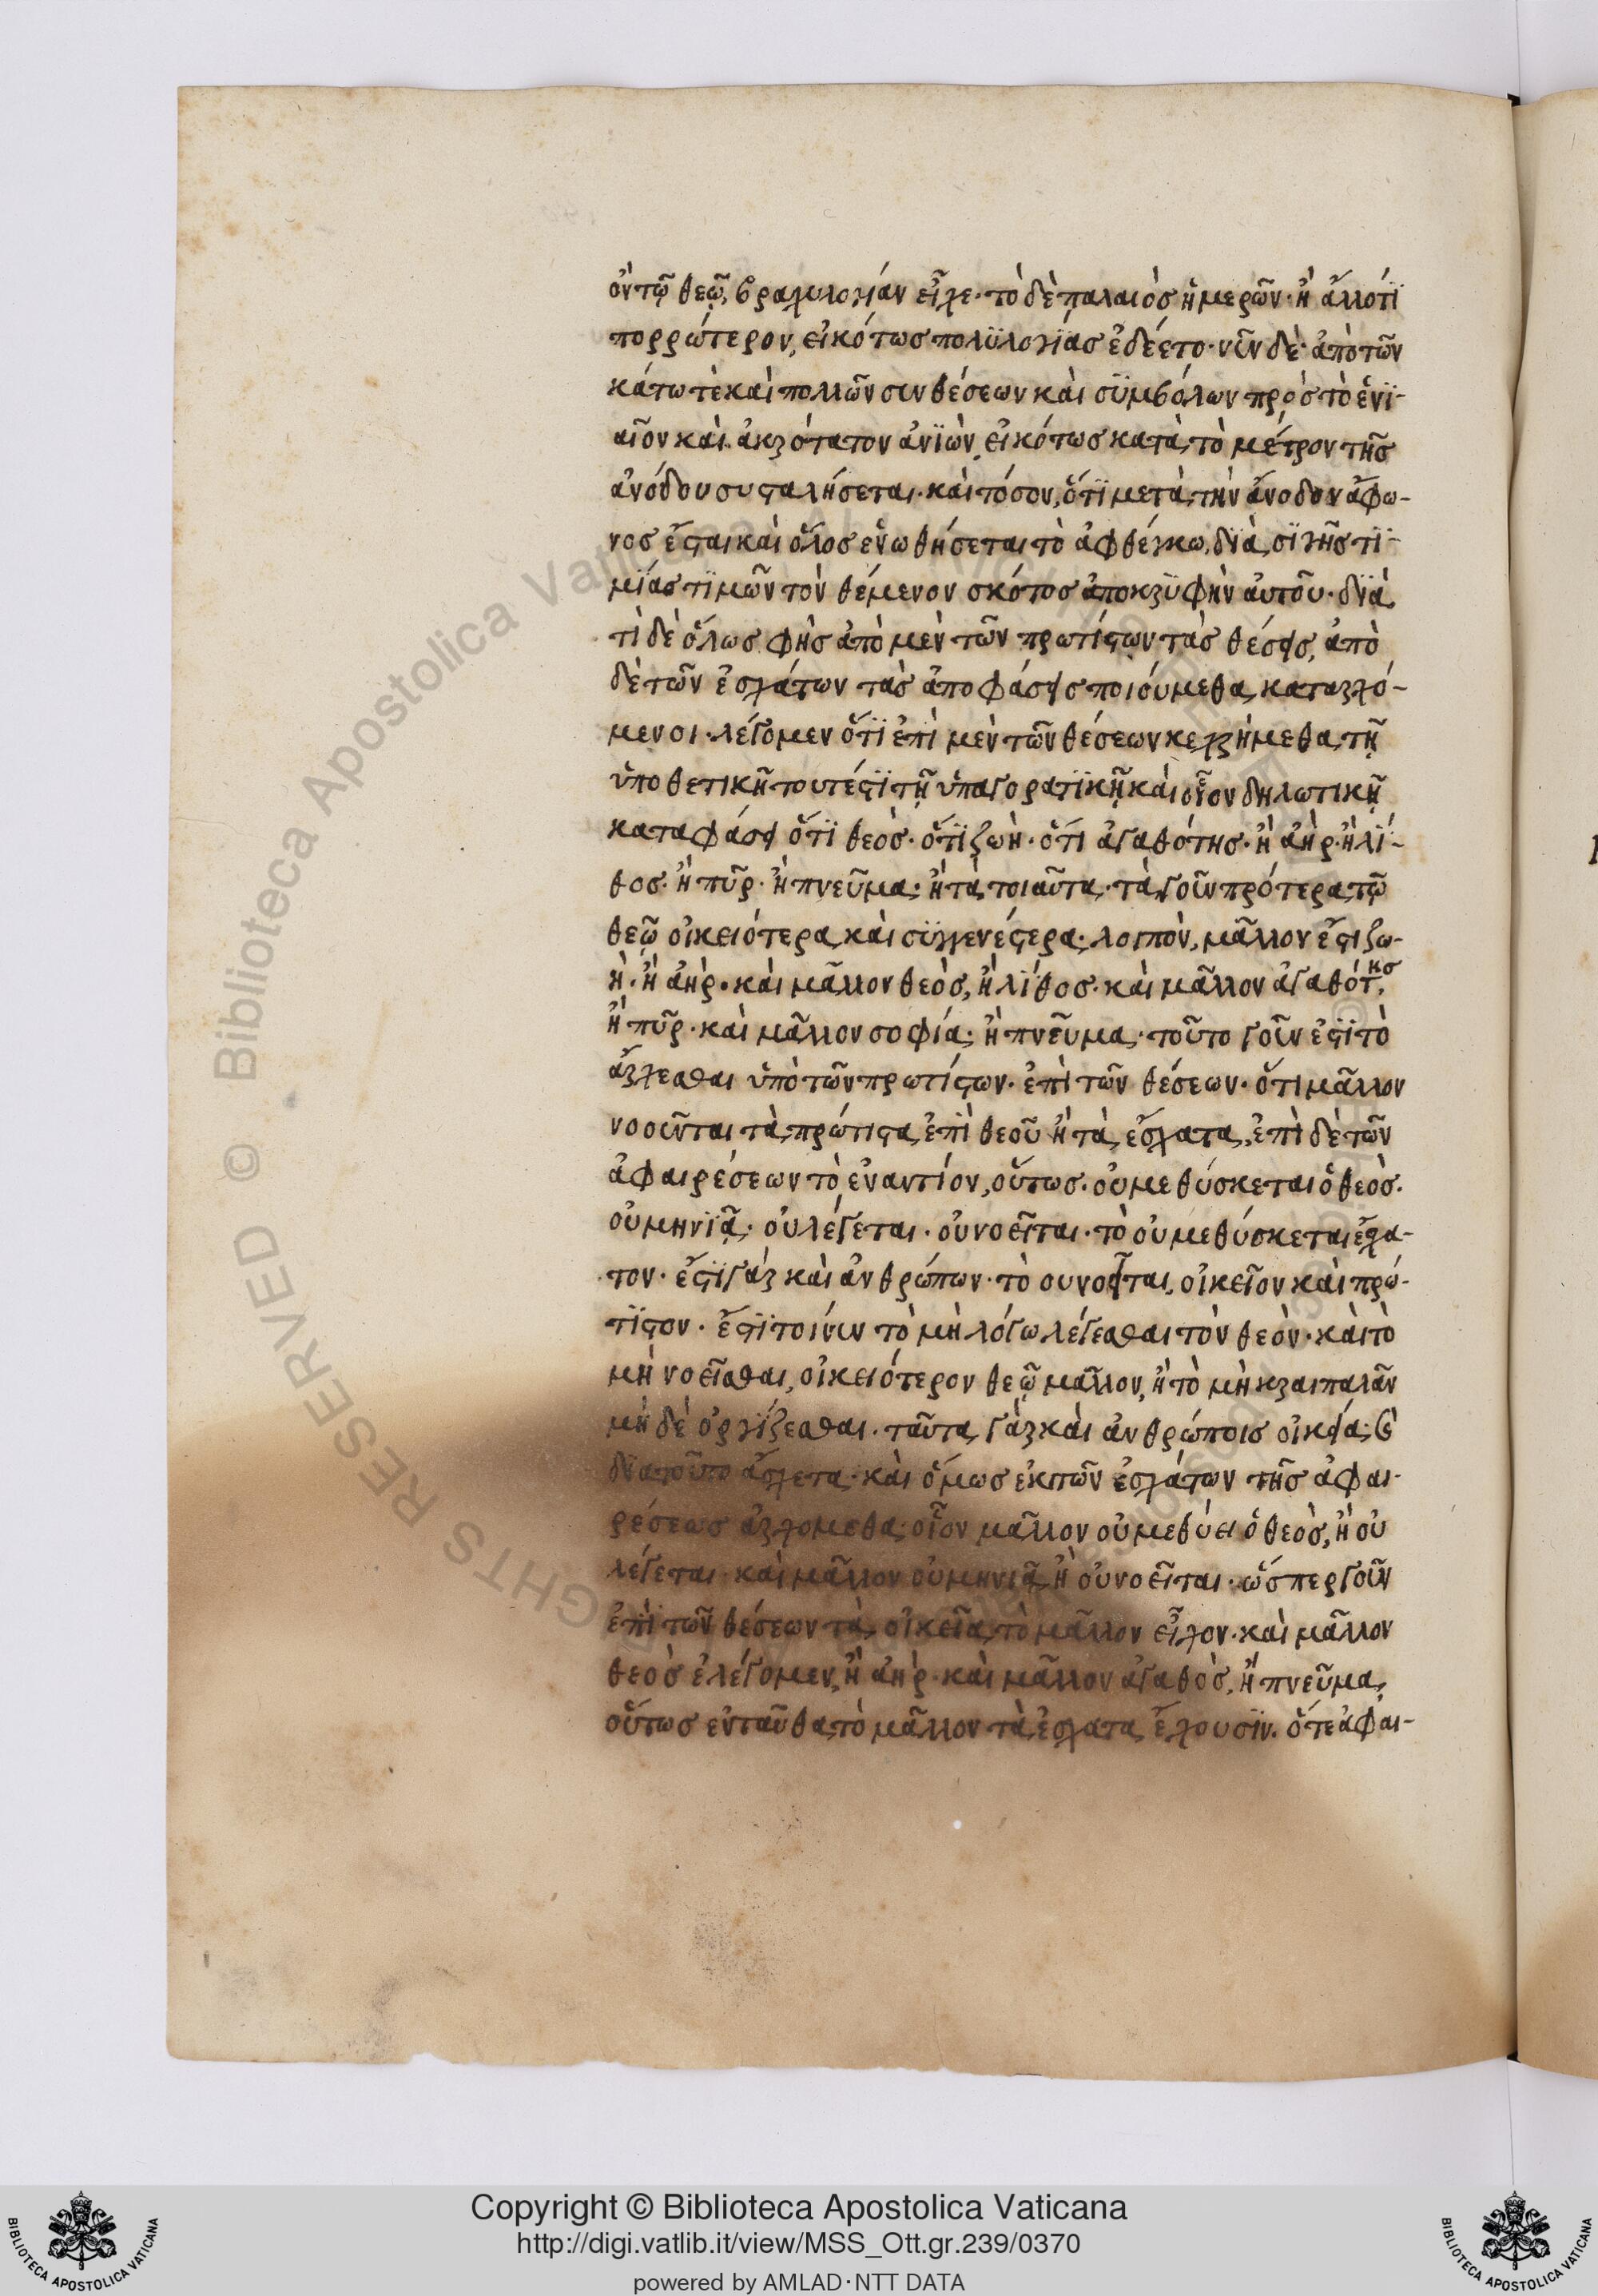 ὸν τῷ θεῷ, βραχυλογίαν εἶχε· τὸ δὲ παλαιὸς ἡμερῶν· ἢ ἄλλό τϊ
πορρώτερον, εἰκότως πολϋλογΐας ἐδέετο· νῦν δὲ· ἀπὸ τῶν
κάτω τὲ καὶ πολλῶν συνθέσεων καὶ σϋμβόλων πρὸς τὸ ἑνϊ-
αῖον καὶ ἀκρότατον ἀνϊὼν, εἰκότως κατὰ τὸ μέτρον τῆς
ἀνόδου συσταλήσεται. καὶ τόσον, ὅτϊ μετὰ τὴν ἄνοδον ἄφω-
νος ἔσται καὶ ὅλος ἑνωθήσεται τὸ ἀφθέγκω, δϊὰ σϊγῆς τϊ-
μΐας τϊμῶν τὸν θέμενον σκότος ἀποκρϋφὴν ἀυτοῦ· δϊὰ
τί δὲ ὅλως φὴς ἀπὸ μὲν τῶν πρωτίστων τὰς θέσεις, ἀπὸ
δὲ τῶν ἐσχάτων τὰς ἀποφάσεις ποιούμεθα, καταρχό-
μενοι· λέγομεν ὅτϊ ἐπὶ μὲν τῶν θέσεων κεχρήμεθα, τῇ
ὑποθετικῇ τουτέστϊ τῇ ὑπαγορατϊκῇ καὶ οἷον δηλωτικῇ
καταφάσει ὅτϊ θεὸς· ὅτϊ ζωὴ· ὅτι ἀγαθότης· ἢ ἀὴρ· ἢ λΐ-
θος· ἢ πῦρ· ἢ πνεῦμα· ἢ τὰ τοιαῦτα· τὰ γοῦν πρότερα, τῷ
θεῷ οἰκειότερα, καὶ σϋγγενέστερα· λοιπὸν, μᾶλλον ἔστι ζω-
ὴ· ἢ ἀὴρ· καὶ μᾶλλον θεὸς, ἢ λΐθος· καὶ μᾶλλον ἀγαθότης,
ἢ πῦρ· καὶ μᾶλλον σοφία· ἢ πνεῦμα· τοῦτο γοῦν ἐστϊ τὸ
ἄρχεσθαι ὑπὸ τῶν πρωτίστων· ἐπὶ τῶν θέσεων· ὅτι μᾶλλον
νοοῦνται τὰ πρώτιστα, ἐπὶ θεοῦ ἢ τὰ ἔσχατα, ἐπὶ δὲ τῶν
ἀφαιρέσεων τὸ ἐναντίον, οὕτως· οὐ μεθύσκεται ὁ θεὸς·
οὐ μηνϊᾷ· οὐ λέγεται· οὐ νοεῖται· τὸ οὐ μεθύσκεται ἔσχα-
τον· ἔστϊ γὰρ καὶ ἀνθρώπων· τὸ ου νοεῖται, οἰκεῖον καὶ πρώ-
τϊστον· ἔστϊ τοίνυν τὸ μὴ λόγω λέγεσθαι τὸν θεὸν· καὶ τὸ
μὴ νοεῖσθαι, οἰκειότερον θεῷ μᾶλλον, ἢ τὸ μὴ κραιπαλᾶν
μὴ δὲ ὀργΐζεσθαι· ταῦτα γὰρ καὶ ἀνθρώποις οἰκεία· καὶ
δϊατοῦτο ἄσχετα· καὶ ὅμως ἐκ τῶν ἐσχάτων τῆς ἀφαι-
ρέσεως ἀρχομεθα· οἷον μᾶλλον οὐ μεθύει ὁ θεὸς, ἢ οὐ
λέγεται· καὶ μᾶλλον οὐ μηνιᾷ, ἢ οὐ νοεῖται· ὥσπερ γοῦν
ἐπὶ τῶν θέσεων τὰ οἰκεῖα, τὸ μᾶλλον εἶχον· καὶ μᾶλλον
θεὸς ἐλέγομεν, ἢ ἀὴρ· καὶ μᾶλλον ἀγαθὸς, ἢ πνεῦμα,
οὕτως ἐνταῦθα, τὸ μᾶλλον τὰ ἔσχατα ἔχουσϊν. ὅτε ἀφαι-
Copyright © Biblioteca Apostolica Vaticana
http://digi.vatlib.it/view/MSS_Ott.gr.239/0370
powered by AMLAD·NTT DATA